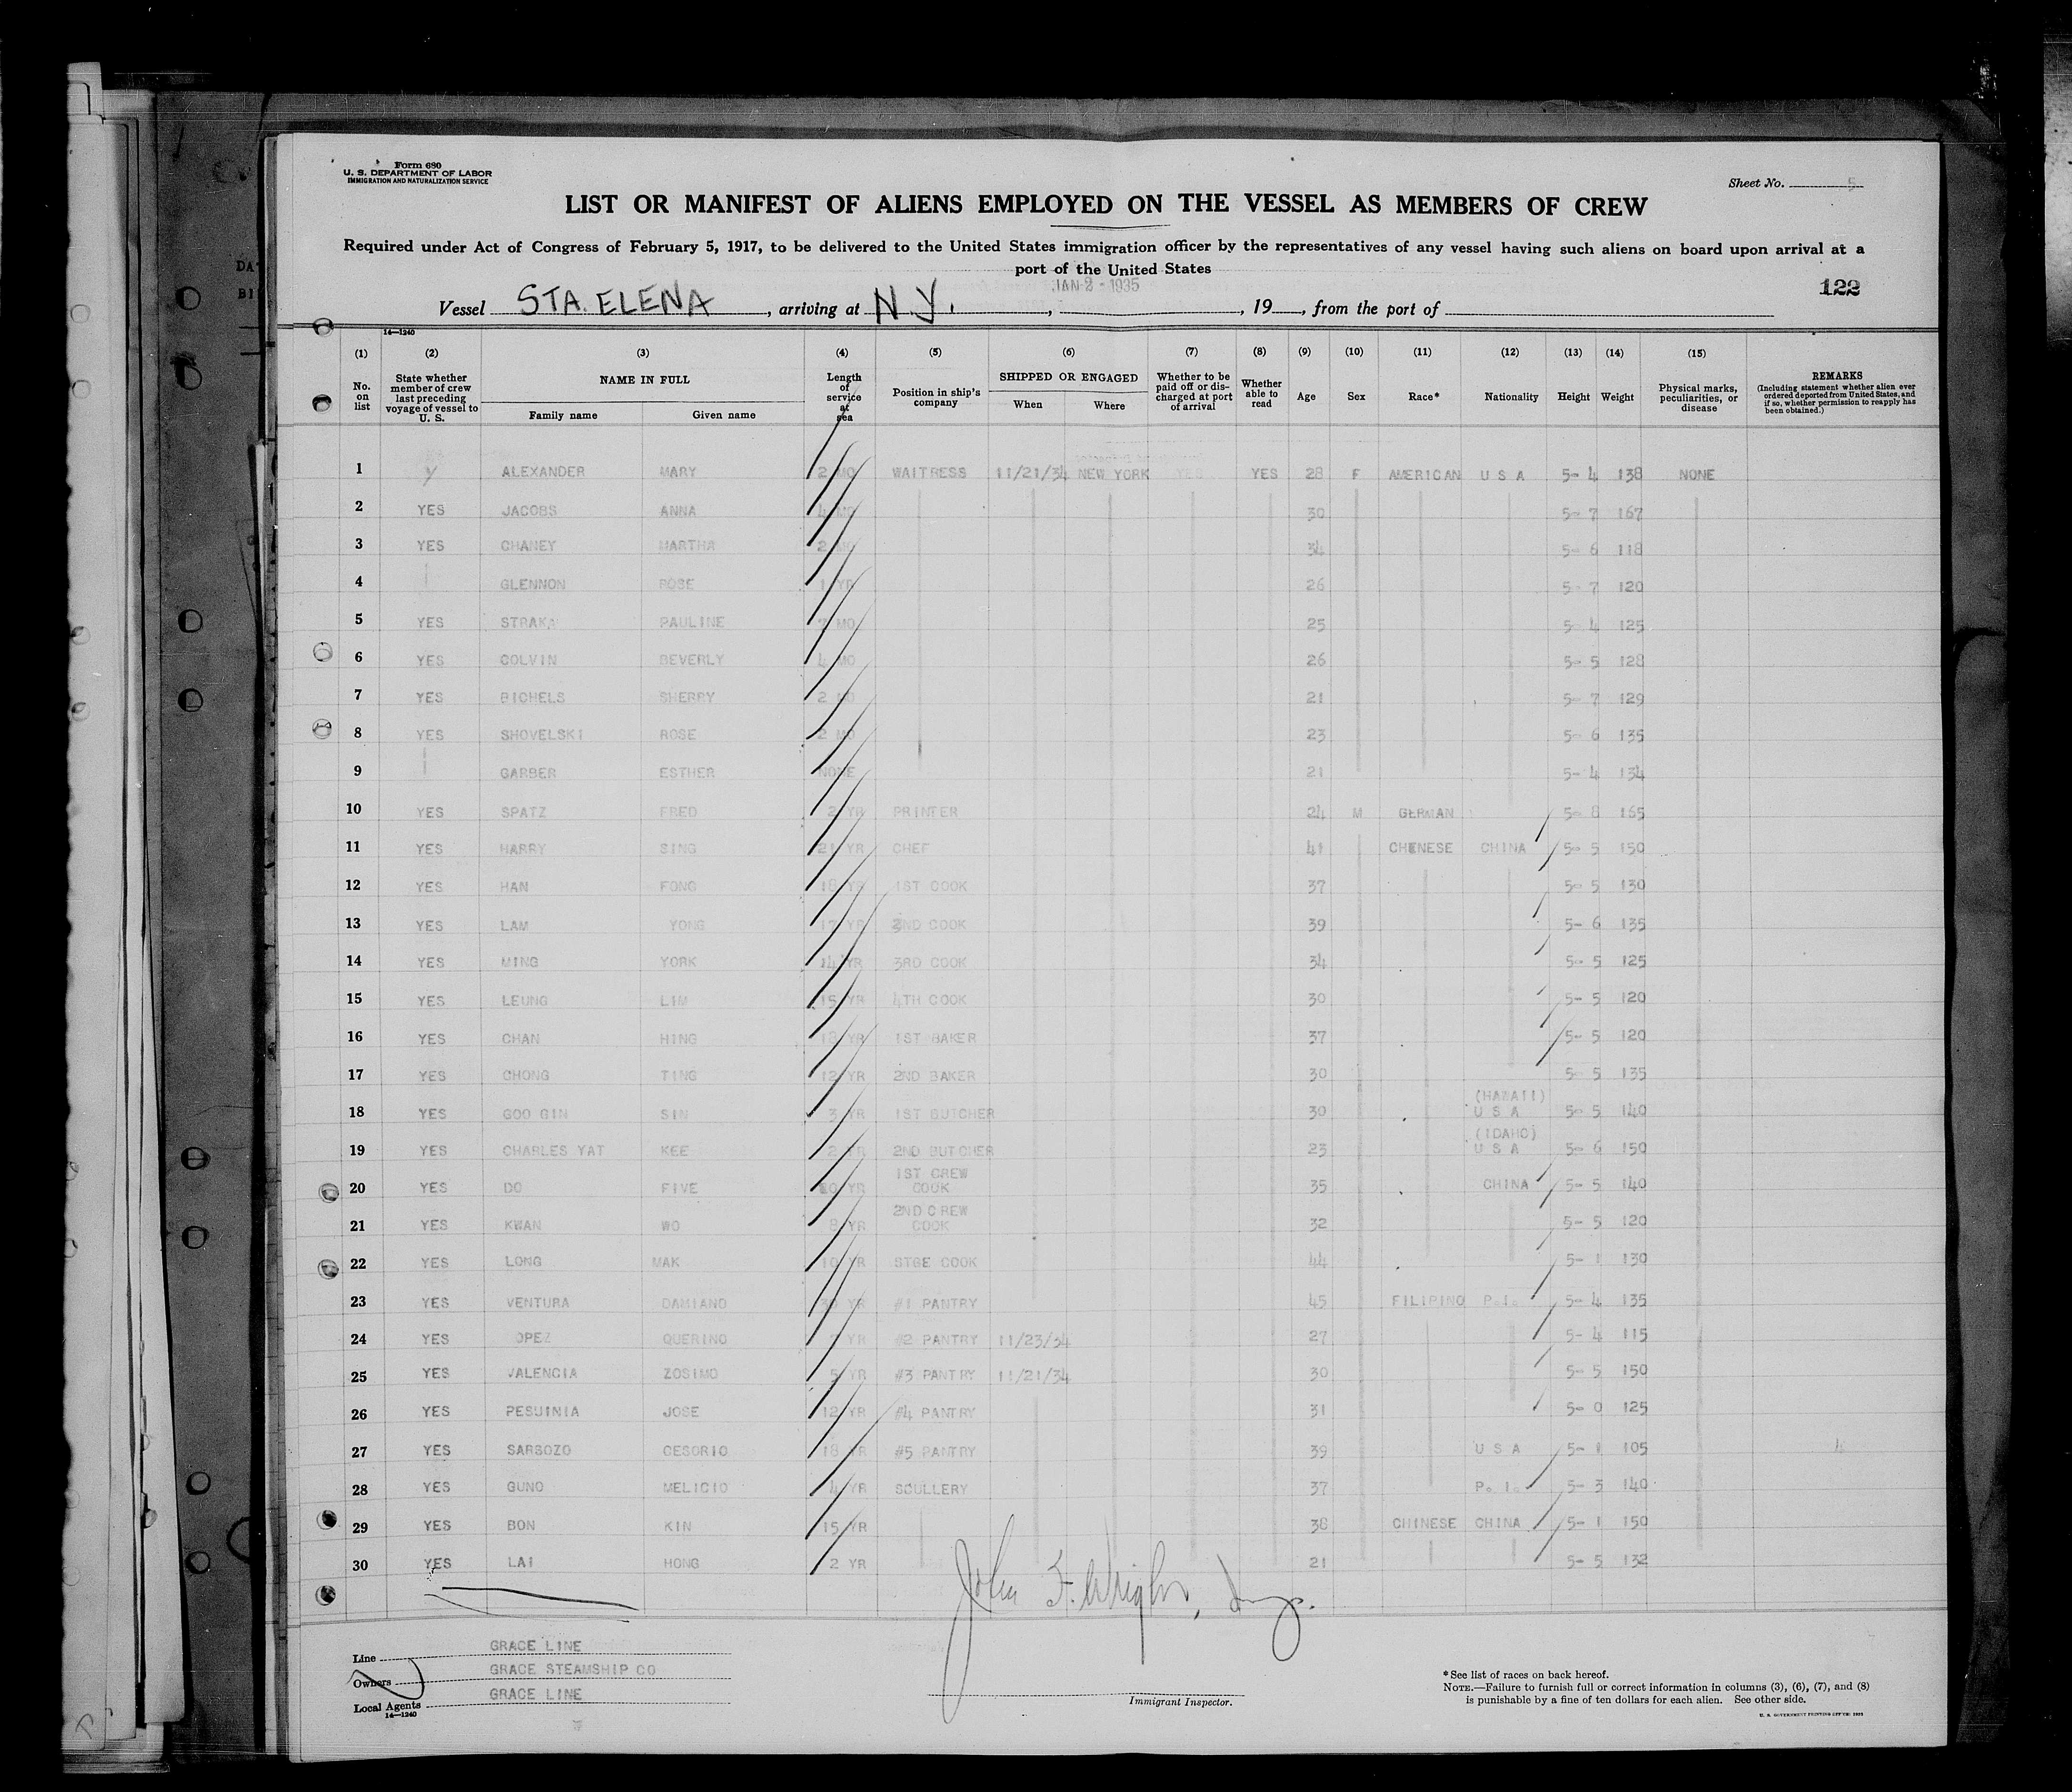 Form 680
U. S. DEPARTMENT OF LABOR
IMMIGRATION AND NATURALIZATION SERVICE
Sheet No. 5
LIST OR MANIFEST OF ALIENS EMPLOYED ON THE VESSEL AS MEMBERS OF CREW
Required under Act of Congress of February 5, 1917, to be delivered to the United States immigration officer by the representatives of any vessel having such aliens on board upon arrival at a
port of the United States
JAN 2 - 1935
122
Vessel STA. ELENA, arriving at N.Y., , 19 , from the port of
14—1240
(1) (2) (3) (4) (5) (6) (7) (8) (9) (10) (11) (12) (13) (14) (15)
No. on list
State whether member of crew last preceding voyage of vessel to U. S.
NAME IN FULL
Family name Given name
Length of service at sea
Position in ship's company
SHIPPED OR ENGAGED
When Where
Whether to be paid off or discharged at port of arrival
Whether able to read
Age Sex Race* Nationality Height Weight
Physical marks, peculiarities, or disease
REMARKS
(Including statement whether alien ever ordered deported from United States, and if so, whether permission to reapply has been obtained.)
1 Y ALEXANDER MARY 2 MO WAITRESS 11/21/34 NEW YORK YES YES 28 F AMERICAN U S A 5- 4 138 NONE
2 YES JACOBS ANNA 4 MO 30 5- 7 167
3 YES CHANEY MARTHA 2 MO 34 5- 6 118
4 GLENNON ROSE 1 YR 26 5- 7 120
5 YES STRAKA PAULINE MO 25 5- 4 125
6 YES COLVIN BEVERLY 4 MO 26 5- 5 128
7 YES BICHELS SHERRY 2 MO 21 5- 7 129
8 YES SHOVELSKI ROSE 2 MO 23 5- 6 135
9 GARBER ESTHER NONE 21 5- 4 134
10 YES SPATZ FRED 2 YR PRINTER 24 M GERMAN 5- 8 165
11 YES HARRY SING 21 YR CHEF 41 CHENESE CHINA 5- 5 150
12 YES HAN FONG 18 YR 1ST COOK 37 5- 5 130
13 YES LAM YONG 17 YR 2ND COOK 39 5- 6 135
14 YES MING YORK 14 YR 3RD COOK 34 5- 5 125
15 YES LEUNG LIM 15 YR 4TH COOK 30 5- 5 120
16 YES CHAN HING YR 1ST BAKER 37 5- 5 120
17 YES CHONG TING 12 YR 2ND BAKER 30 5- 5 135
(HAWAII)
18 YES GOO GIN SIN 3 YR 1ST BUTCHER 30 U S A 5- 5 140
(IDAHO)
19 YES CHARLES YAT KEE 2 YR 2ND BUTCHER 23 U S A 5- 6 150
1ST CREW
20 YES DO FIVE YR COOK 35 CHINA 5- 5 140
2ND CREW
21 YES KWAN WO 8 YR COOK 32 5- 5 120
22 YES LONG MAK 10 YR STGE COOK 44 5- 1 130
23 YES VENTURA DAMIANO YR #1 PANTRY 45 FILIPINO P.I. 5- 4 135
24 YES OPEZ QUERINO YR #2 PANTRY 11/23/34 27 5- 4 115
25 YES VALENCIA ZOSIMO 5 YR #3 PANTRY 11/21/34 30 5- 5 150
26 YES PESUINIA JOSE 12 YR #4 PANTRY 31 5- 0 125
27 YES SARBOZO CESORIO 18 YR #5 PANTRY 39 U S A 5- 1 105
28 YES GUNO MELICIO 4 YR SCULLERY 37 P. I. 5- 3 140
29 YES BON KIN 15 YR 38 CHINESE CHINA 5- 1 150
30 YES LAI HONG 2 YR 21 5- 5 132
John F. Wright, Insp.
Line GRACE LINE
Owners GRACE STEAMSHIP CO
Local Agents GRACE LINE
14—1240
Immigrant Inspector.
*See list of races on back hereof.
NOTE.—Failure to furnish full or correct information in columns (3), (6), (7), and (8)
is punishable by a fine of ten dollars for each alien. See other side.
U. S. GOVERNMENT PRINTING OFFICE: